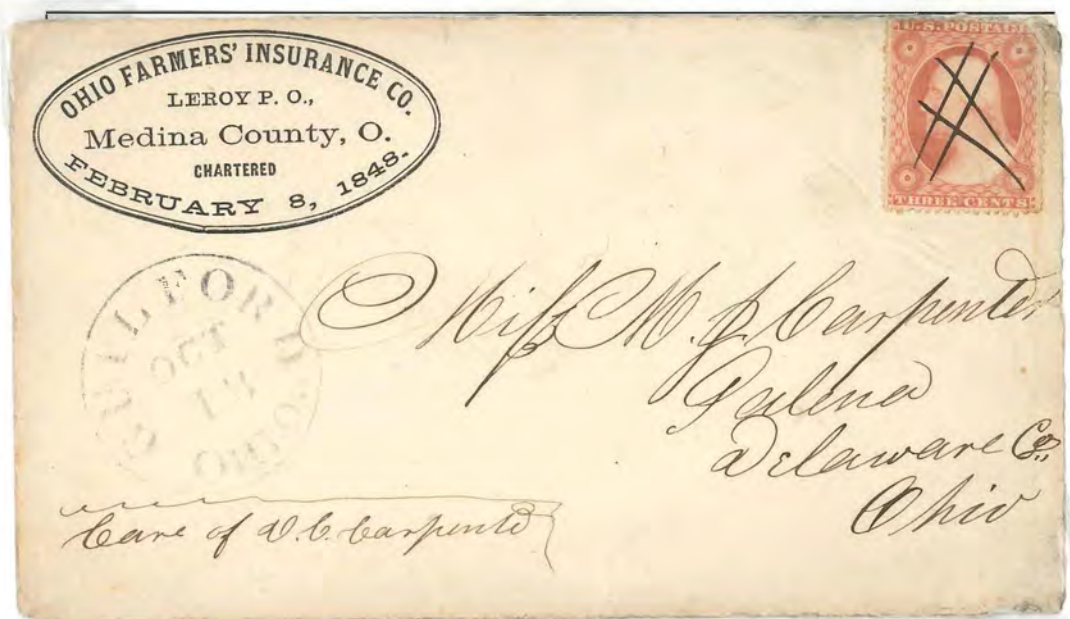 OHIO FARMERS' INSURANCE CO.
LEROY P. O.,
Medina County, O.
CHARTERED
FEBRUARY 8, 1848.
U.S. POSTAGE
THREE CENTS
GUILFORD
OCT
13
OHIO
Miss M. J. Carpenter
Galena
Delaware Co.
Ohio
Care of D. C. Carpenter